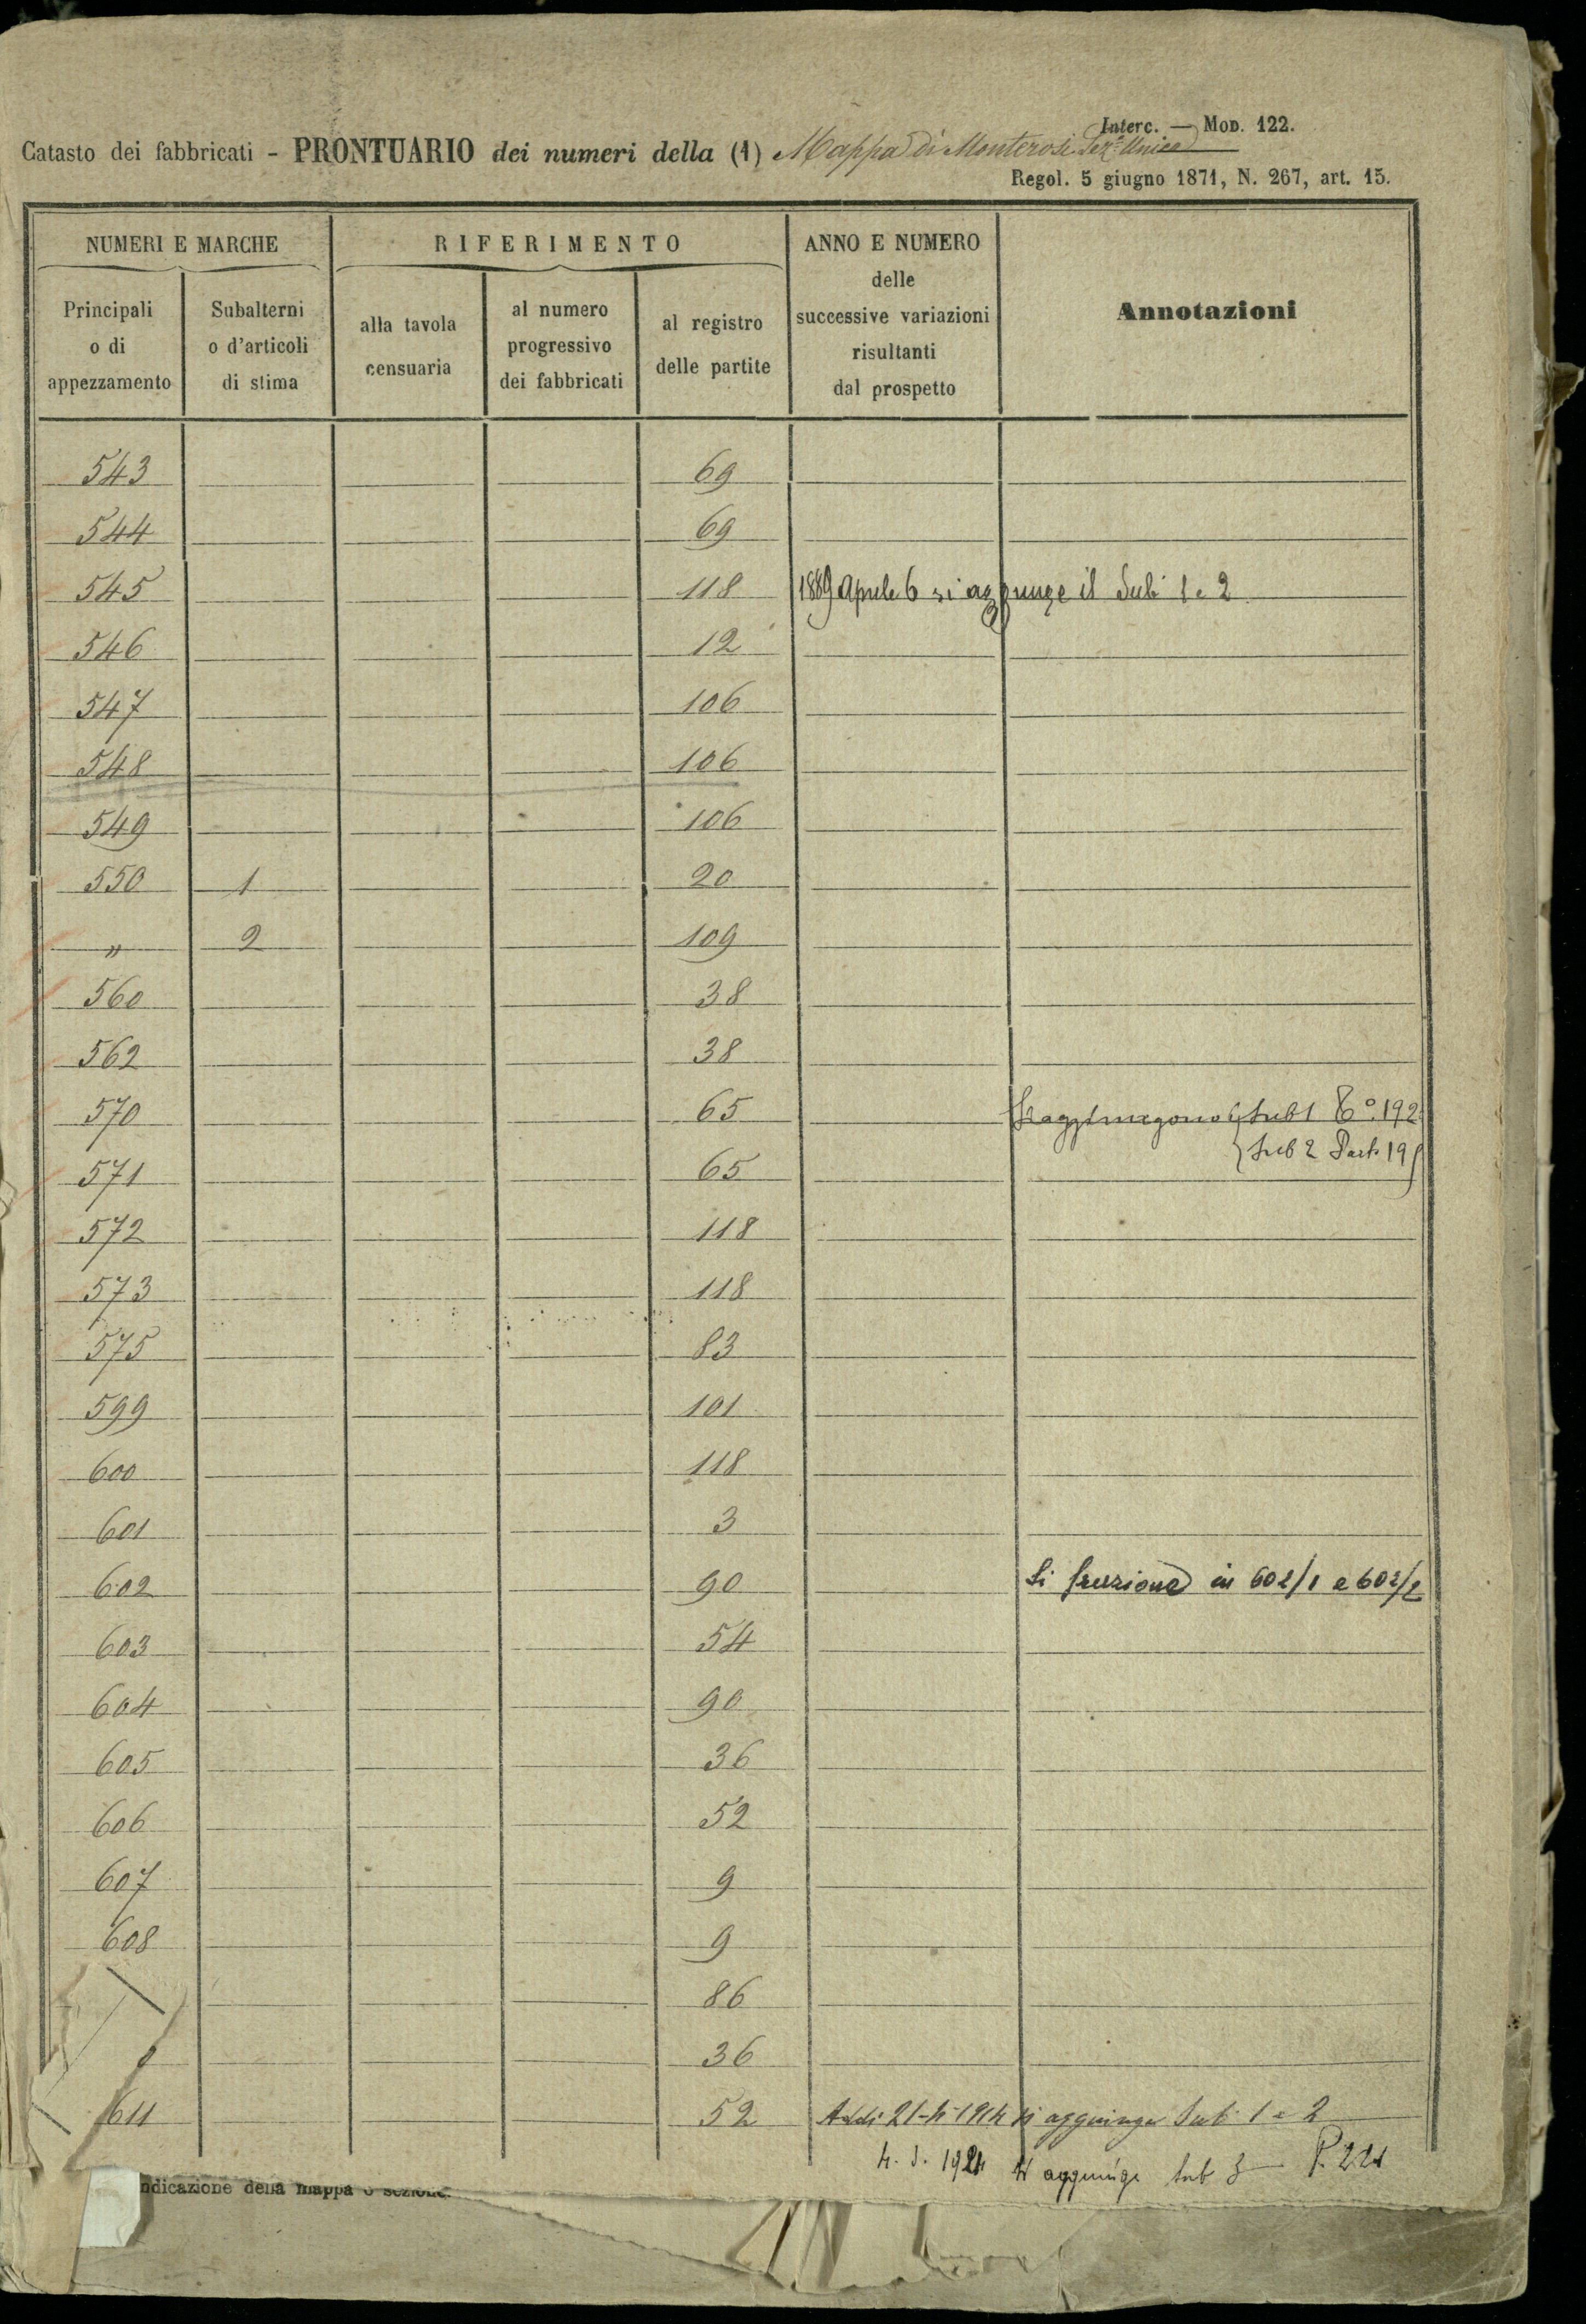 Interc. — Mod. 122.
Catasto dei fabbricati - PRONTUARIO dei numeri della (1) Mappa di Monterosi Sez.e Unica
Regol. 5 giugno 1871, N. 267, art. 15.
NUMERI E MARCHE RIFERIMENTO ANNO E NUMERO delle successive variazioni risultanti dal prospetto Annotazioni
Principali o di appezzamento Subalterni o d'articoli di stima alla tavola censuaria al numero progressivo dei fabbricati al registro delle partite
543 69
544 69
545 118 1889 Aprile 6 si aggiunge il Sub 1 e 2
546 12
547 106
548 106
549 106
550 1 20
" 2 109
560 38
562 38
570 65 Sub 1 192
Sub 2 Part. 19
571 65
572 118
573 118
575 83
599 101
600 118
601 3
602 90 Si in 602/1 e 602/2
603 54
604 90
605 36
606 52
607 9
608 9
86
36
611 52 Addi 21-4-1914 si aggiunge Sub 1 e 2
1924 si aggiunge sub 3 P. 221
ndicazione della mappa o sezione.